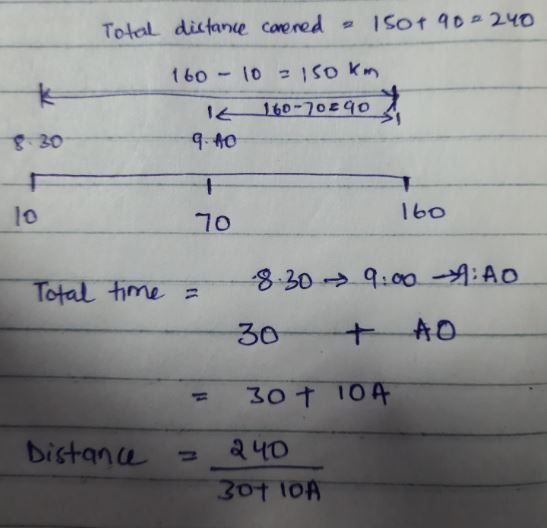 Total distance covered = 150 + 90 = 240
160 - 10 = 150 Km
160-70=90
8.30 9.A0
10 70 160
Total time = 8.30 → 9:00 → 9:A0
30 + A0
= 30 + 10A
Distance = 240
30+10A